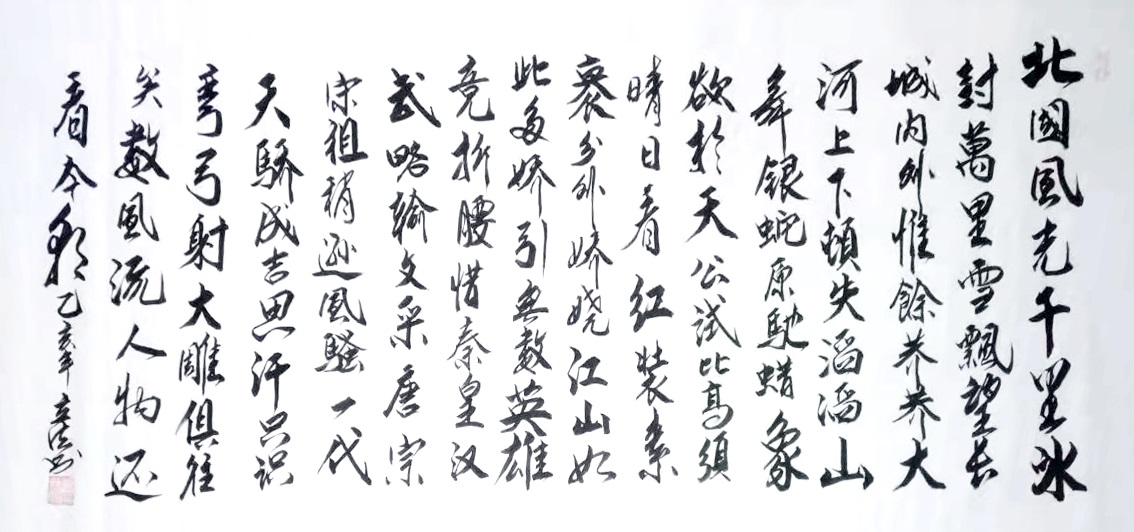 北國風光千里冰
封萬里雪飄望长
城内外惟餘莽莽大
河上下頓失滔滔山
舞銀蛇原馳蜡象
欲於天公試比高須
晴日看红裝素
裹分外娇娆江山如
此多娇引無數英雄
竞折腰惜秦皇汉
武略输文采唐宗
宋祖稍逊風骚一代
天骄成吉思汗只识
弯弓射大雕俱往
矣數風流人物还
看今朝 乙亥年